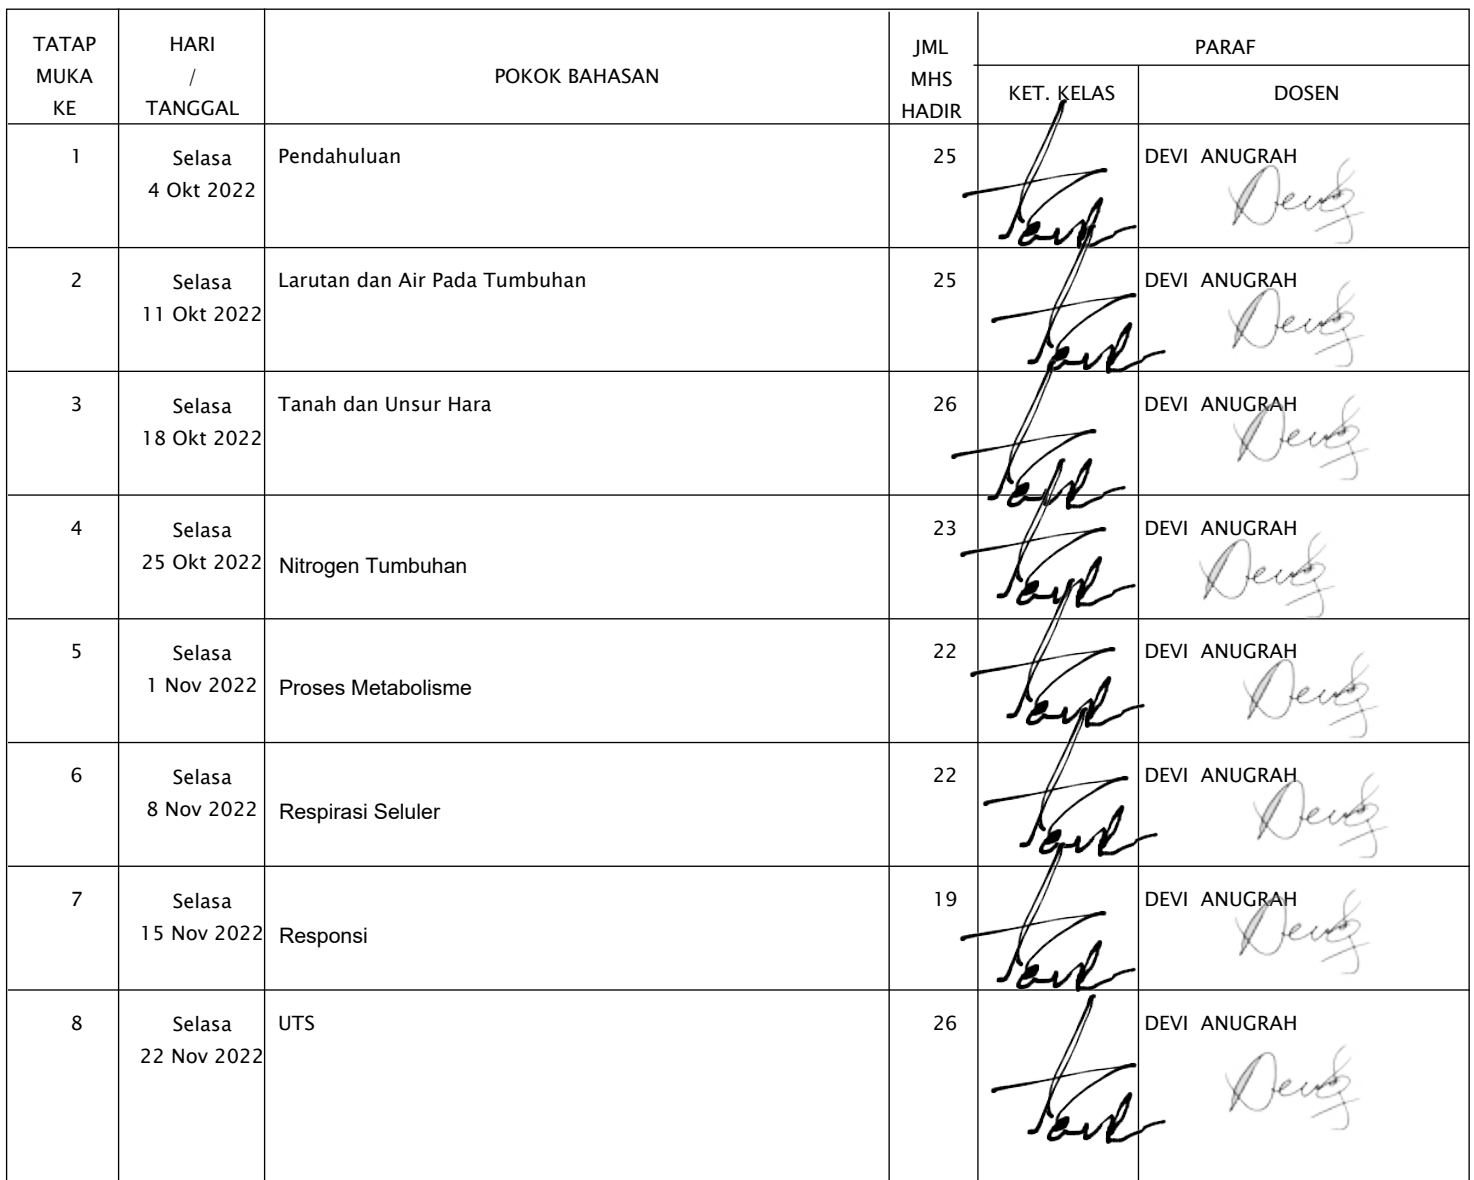 TATAP MUKA KE
HARI / TANGGAL
POKOK BAHASAN
JML MHS HADIR
PARAF
KET. KELAS
DOSEN
1
Selasa
4 Okt 2022
Pendahuluan
25
DEVI ANUGRAH
2
Selasa
11 Okt 2022
Larutan dan Air Pada Tumbuhan
25
DEVI ANUGRAH
3
Selasa
18 Okt 2022
Tanah dan Unsur Hara
26
DEVI ANUGRAH
4
Selasa
25 Okt 2022
Nitrogen Tumbuhan
23
DEVI ANUGRAH
5
Selasa
1 Nov 2022
Proses Metabolisme
22
DEVI ANUGRAH
6
Selasa
8 Nov 2022
Respirasi Seluler
22
DEVI ANUGRAH
7
Selasa
15 Nov 2022
Responsi
19
DEVI ANUGRAH
8
Selasa
22 Nov 2022
UTS
26
DEVI ANUGRAH